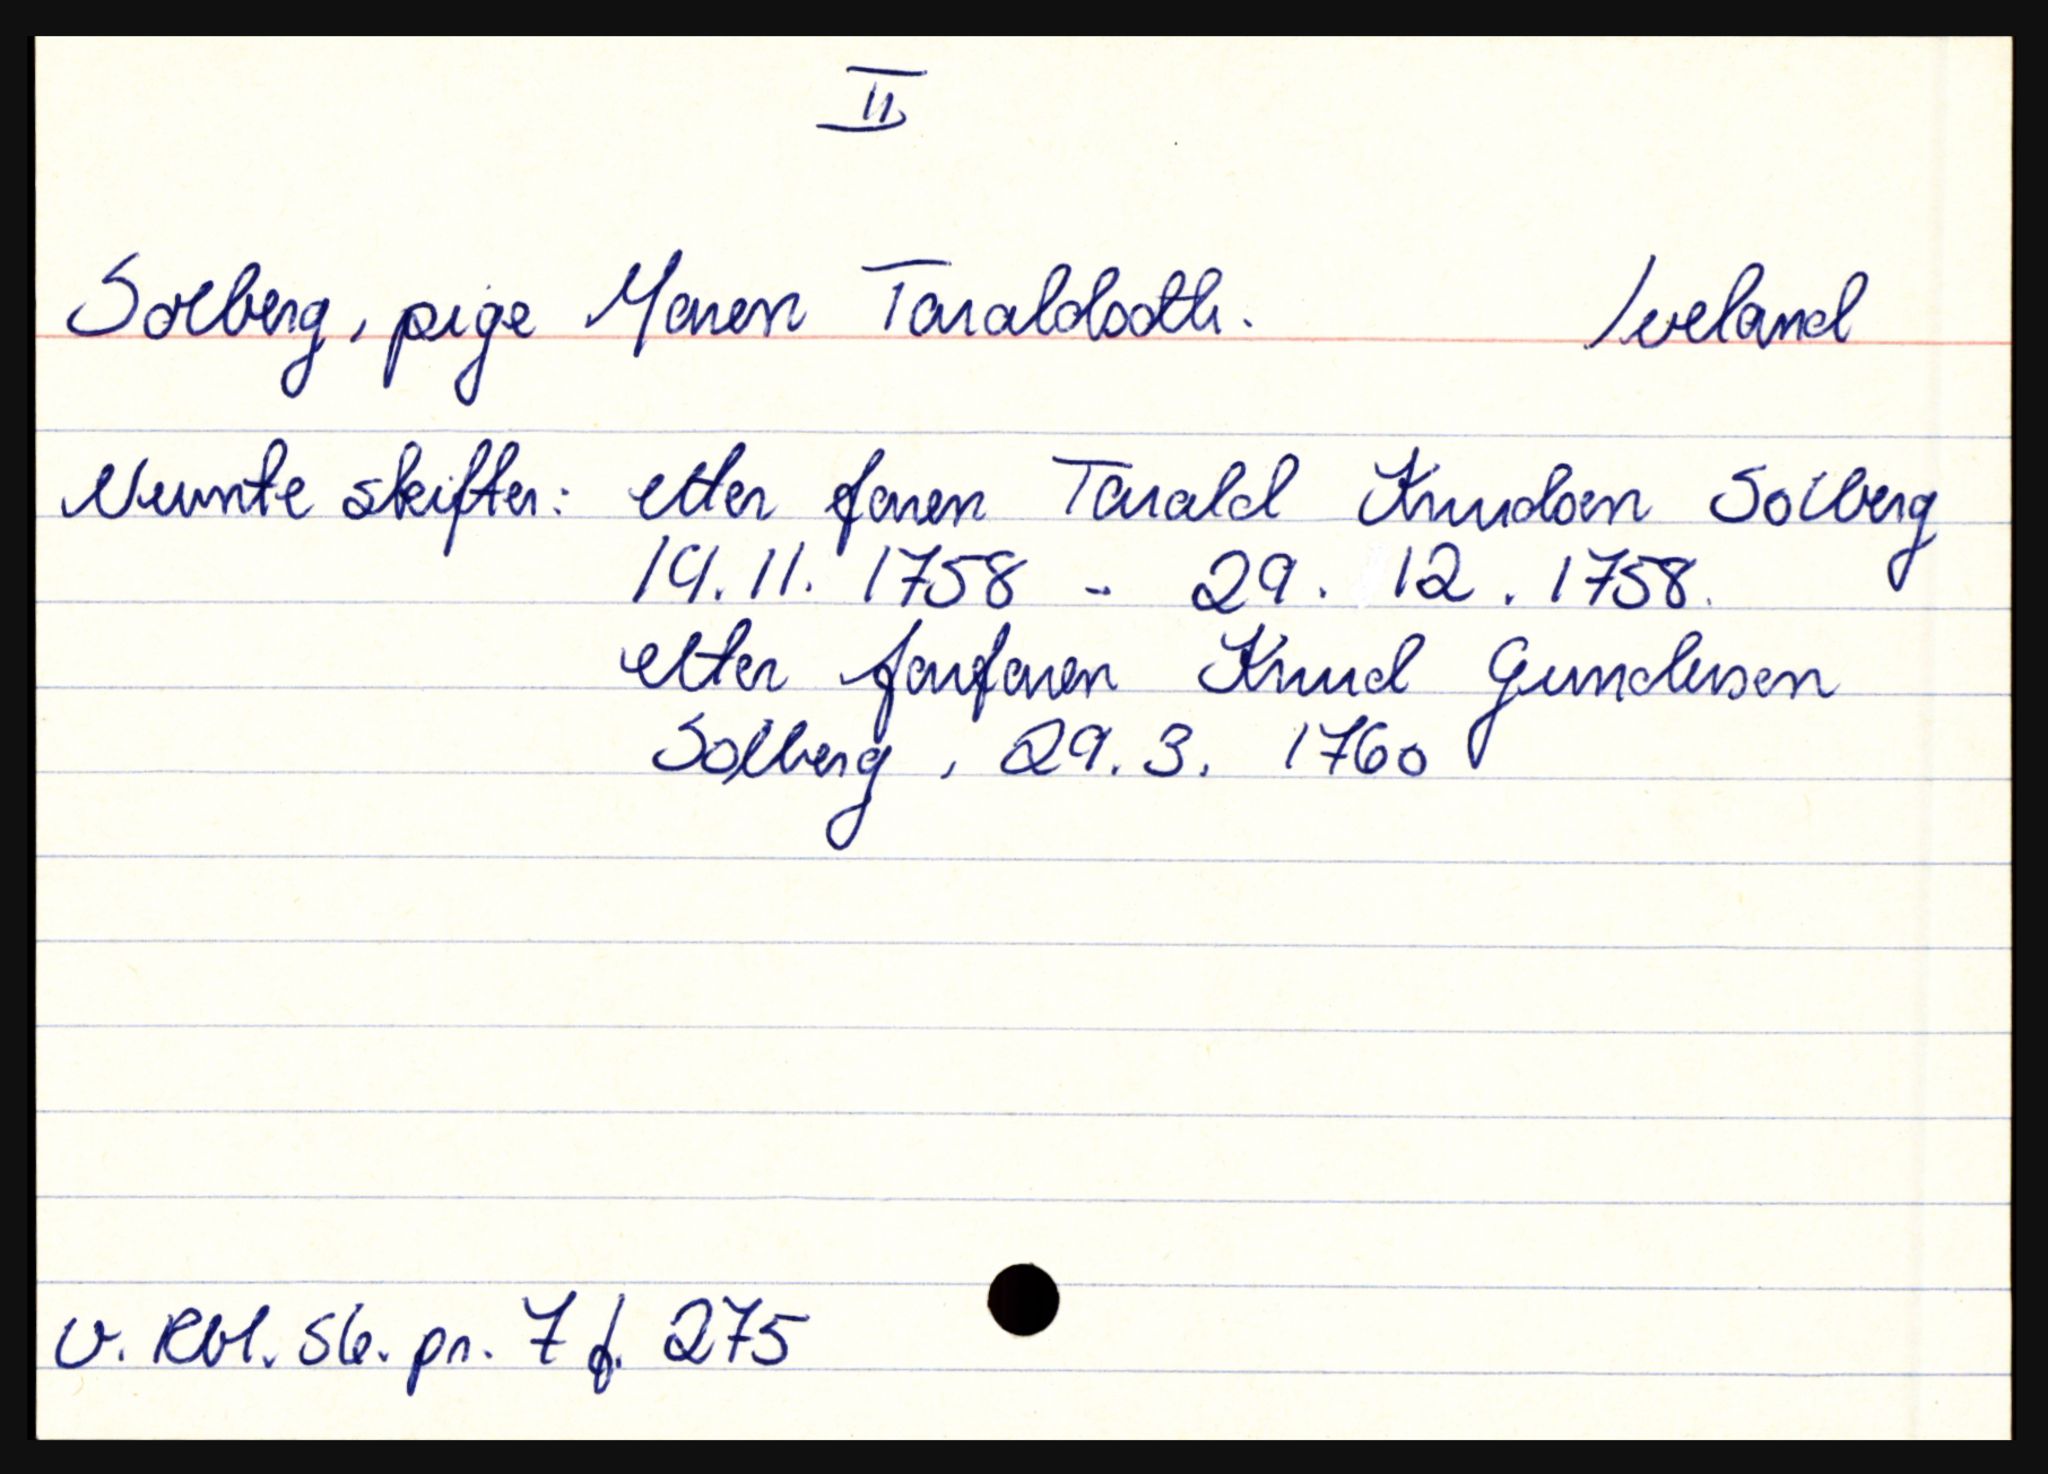 II
Solberg, pige Maren Taraldsdtr. Iveland
Nevnte skifter: etter faren Tarald Knudsen Solberg
14.11. 1758 - 29. 12. 1758.
etter farfaren Knud Gundersen
Solberg, 29.3. 1760
v. Rbl. Sk. pr. 7 f. 275